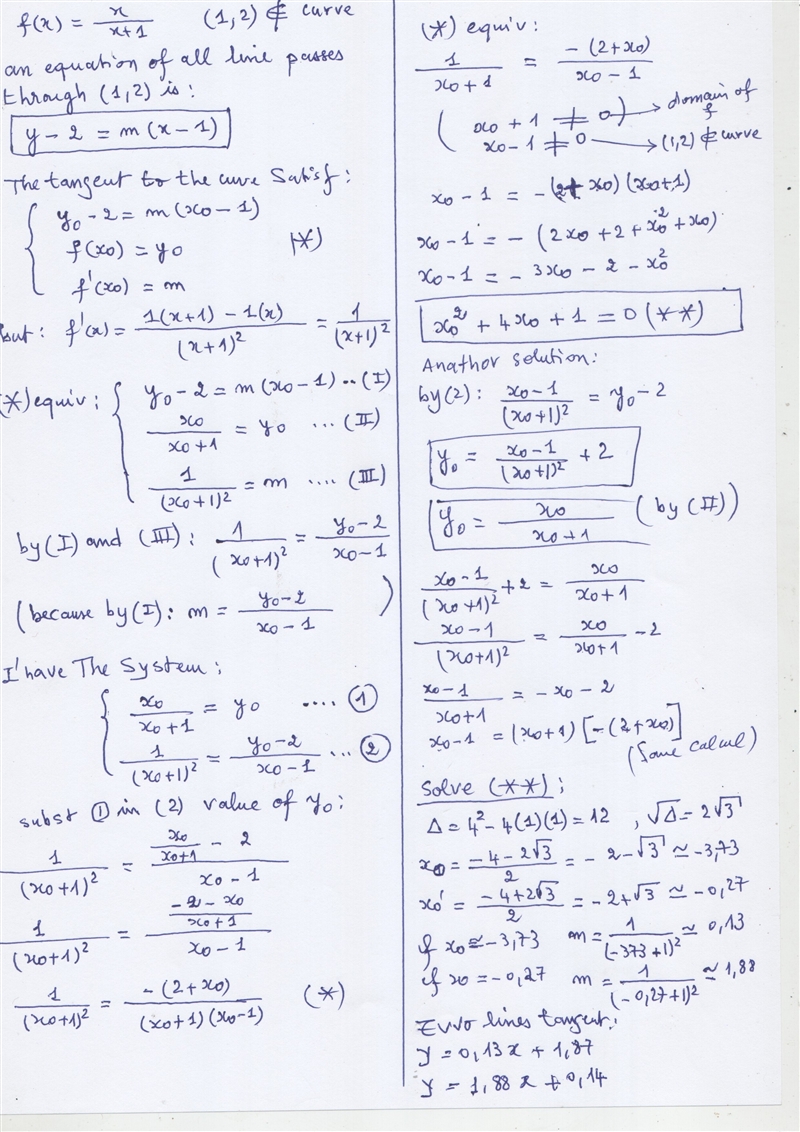 f(x) = x/(x+1) (1,2) ∉ curve
an equation of all line passes
through (1,2) is:
y-2 = m(x-1)
The tangent to the curve Satisf:
y₀-2 = m(x₀-1)
f(x₀) = y₀ (*)
f'(x₀) = m
but: f'(x) = (1(x+1) - 1(x))/(x+1)² = 1/(x+1)²
(*) equiv: y₀-2 = m(x₀-1) .. (I)
x₀/(x₀+1) = y₀ ... (II)
1/(x₀+1)² = m .... (III)
by (I) and (III): 1/(x₀+1)² = (y₀-2)/(x₀-1)
(because by (I): m = (y₀-2)/(x₀-1))
I'have The System:
x₀/(x₀+1) = y₀ .... ①
1/(x₀+1)² = (y₀-2)/(x₀-1) ... ②
subst ① in (2) value of y₀:
1/(x₀+1)² = (x₀/(x₀+1) - 2)/(x₀-1)
1/(x₀+1)² = ((-2-x₀)/(x₀+1))/(x₀-1)
1/(x₀+1)² = -(2+x₀)/((x₀+1)(x₀-1)) (*)
(*) equiv:
1/(x₀+1) = -(2+x₀)/(x₀-1)
(x₀+1 ≠ 0) → domain of f
x₀-1 ≠ 0 → (1,2) ∉ curve
x₀-1 = -(2+x₀)(x₀+1)
x₀-1 = -(2x₀+2+x₀²+x₀)
x₀-1 = -3x₀-2-x₀²
x₀²+4x₀+1 = 0 (**)
Anathor solution:
by(2): (x₀-1)/(x₀+1)² = y₀-2
y₀ = (x₀-1)/(x₀+1)² + 2
y₀ = x₀/(x₀+1) (by (II))
(x₀-1)/(x₀+1)² + 2 = x₀/(x₀+1)
(x₀-1)/(x₀+1)² = x₀/(x₀+1) - 2
(x₀-1)/(x₀+1) = -x₀-2
x₀-1 = (x₀+1)[-(2+x₀)]
(Same calcul)
Solve (**):
Δ = 4²-4(1)(1) = 12 , √Δ = 2√3
x₀ = (-4-2√3)/2 = -2-√3 ≃ -3,73
x₀' = (-4+2√3)/2 = -2+√3 ≃ -0,27
if x₀ ≃ -3,73 m = 1/(-373+1)² ≃ 0,13
if x₀ = -0,27 m = 1/(-0,27+1)² ≃ 1,88
lines tangent:
y = 0,13x + 1,87
y = 1,88x + 0,14